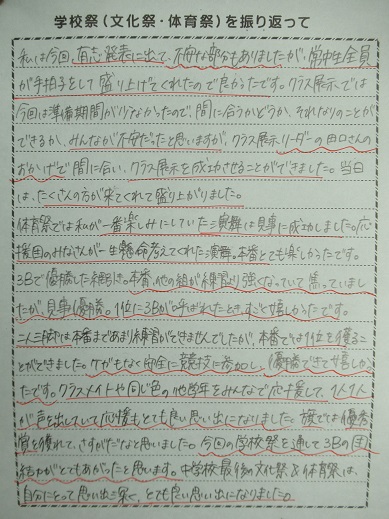 学校祭(文化祭・体育祭)を振り返って
私は今回、有志発表に出て、不安な部分もありましたが、常中生全員
が手拍子をして盛り上げてくれたので良かったです。クラス展示では
今回は準備期間が少なかったので、間に合うかどうか、それなりのことが
できるか、みんなが不安だったと思いますが、クラス展示リーダーの田口さんの
おかげで間に合い、クラス展示を成功させることができました。当日
は、たくさんの方が来てくれて盛り上がりました。
体育祭では私が一番楽しみにしていた演舞は見事に成功しました。応
援団のみなさんが一生懸命考えてくれた演舞。本番とても楽しかったです。
3Bで優勝した綱引き。本番、他の組が練習より強くなっていて焦っていまし
たが、見事優勝。1位に3Bが呼ばれたとき、すごく嬉しかったです。
二人三脚は本番まであまり練習ができませんでしたが、本番では1位を獲るこ
とができました。ケガもなく安全に競技に参加し、優勝できて嬉しか
ったです。クラスメイトや同じ色の他学年をみんなで応援して、1人1人
が声を出していて応援もとても良い思い出になりました。旗では優秀
賞を獲れて、さすがだなと思いました。今回の学校祭を通して3Bの団
結力がとてもあがったと思います。中学校最後の文化祭&体育祭は、
自分にとって思い出深く、とても良い思い出になりました。